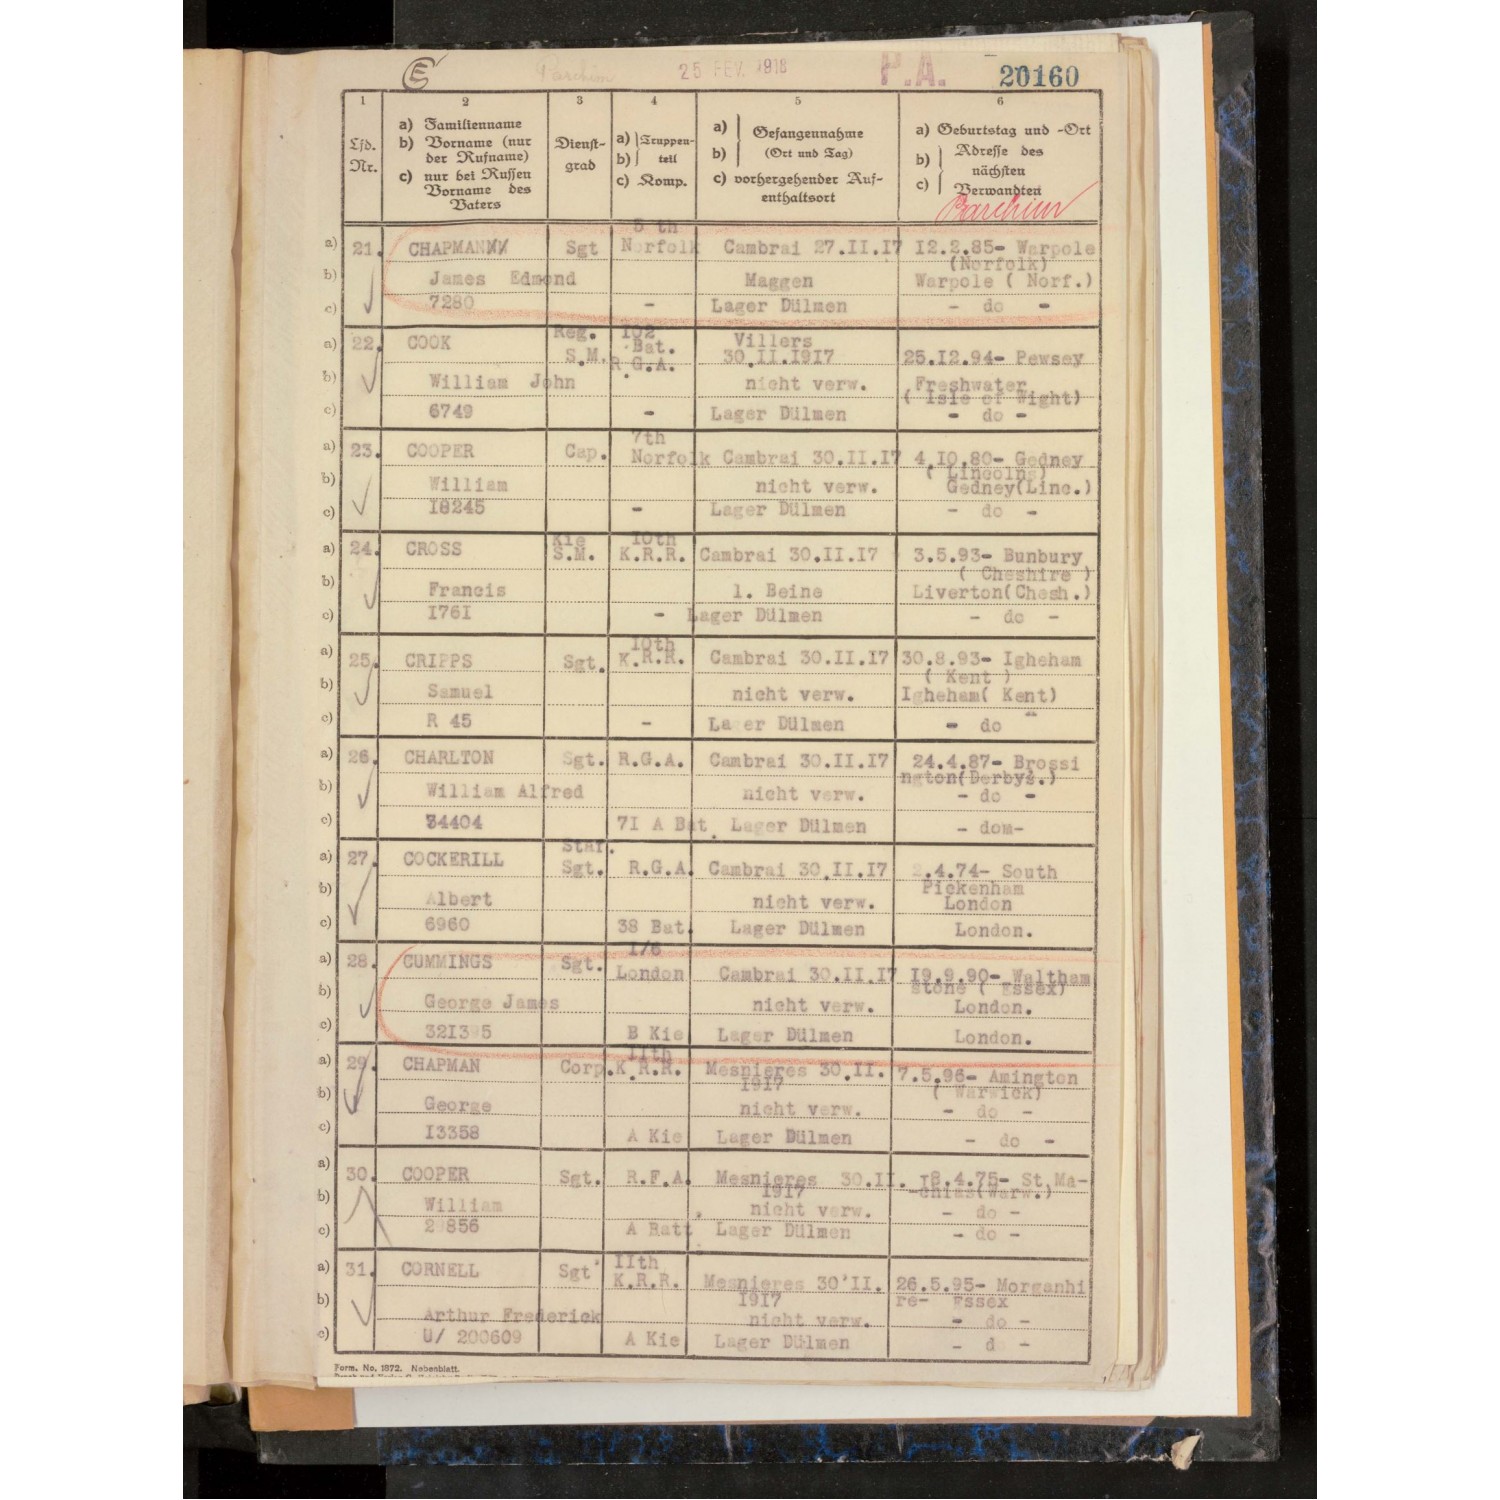 E Parchim 25 FEV. 1918 P.A. 20160
1 2 3 4 5 6
Lfd. Nr.
a) Familienname
b) Vorname (nur
der Rufname)
c) nur bei Russen
Vorname des
Vaters
Dienst-
grad
a) Truppen-
b) teil
c) Komp.
a) Gefangennahme
b) (Ort und Tag)
c) vorhergehender Auf-
enthaltsort
a) Geburtstag und -Ort
b) Adresse des
nächsten
c) Verwandten
Parchim
5 th
a) 21. CHAPMAN Sgt Norfolk Cambrai 27.II.I7 I2.2.85- Warpole
(Norfolk)
b) James Edmond Maggen Warpole ( Norf.)
c) 7280 - Lager Dülmen - do -
Reg. I02 Villers
a) 22. COOK S.M. Bat. 30.II.I9I7 25.I2.94- Pewsey
R.G.A.
b) William John nicht verw. Freshwater
( Isle of Wight)
c) 6749 - Lager Dülmen - do -
7th
a) 23. COOPER Cap. Norfolk Cambrai 30.II.I7 4.I0.80- Gedney
( Lincolns)
b) William nicht verw. Gedney(Linc.)
c) I8245 - Lager Dülmen - do -
Kie I0th
a) 24. CROSS S.M. K.R.R. Cambrai 30.II.I7 3.5.93- Bunbury
( Cheshire )
b) Francis l. Beine Liverton(Chesh.)
c) I76I - Lager Dülmen - do -
I0th
a) 25. CRIPPS Sgt. K.R.R. Cambrai 30.II.I7 30.8.93- Igheham
( Kent )
b) Samuel nicht verw. Igheham( Kent)
c) R 45 - Lager Dülmen - do -
a) 26. CHARLTON Sgt. R.G.A. Cambrai 30.II.I7 24.4.87- Brossi
ngton(Derbys.)
b) William Alfred nicht verw. - do -
c) 34404 7I A Bat. Lager Dülmen - dom-
Staf.
a) 27. COCKERILL Sgt. R.G.A. Cambrai 30.II.I7 2.4.74- South
Pickenham
b) Albert nicht verw. London
c) 6960 38 Bat. Lager Dülmen London.
I/6
a) 28. CUMMINGS Sgt. London Cambrai 30.II.I7 I9.9.90- Waltham
stone ( Essex)
b) George James nicht verw. London.
c) 32I395 B Kie Lager Dülmen London.
IIth
a) 29. CHAPMAN Corp. K.R.R. Mesnieres 30.II. 7.5.96- Amington
I9I7 ( Warwick)
b) George nicht verw. - do -
c) I3358 A Kie Lager Dülmen - do -
a) 30. COOPER Sgt. R.F.A. Mesnieres 30.II. I8.4.75- St.Ma-
I9I7 -chias(Warw.)
b) William nicht verw. - do -
c) 29856 A Batt Lager Dülmen - do -
IIth
a) 31. CORNELL Sgt K.R.R. Mesnieres 30'II. 26.5.95- Morganhi
I9I7 re- Essex
b) Arthur Frederick nicht verw. - do -
c) U/ 200609 A Kie Lager Dülmen - d -
Form. No. 1872. Nebenblatt.